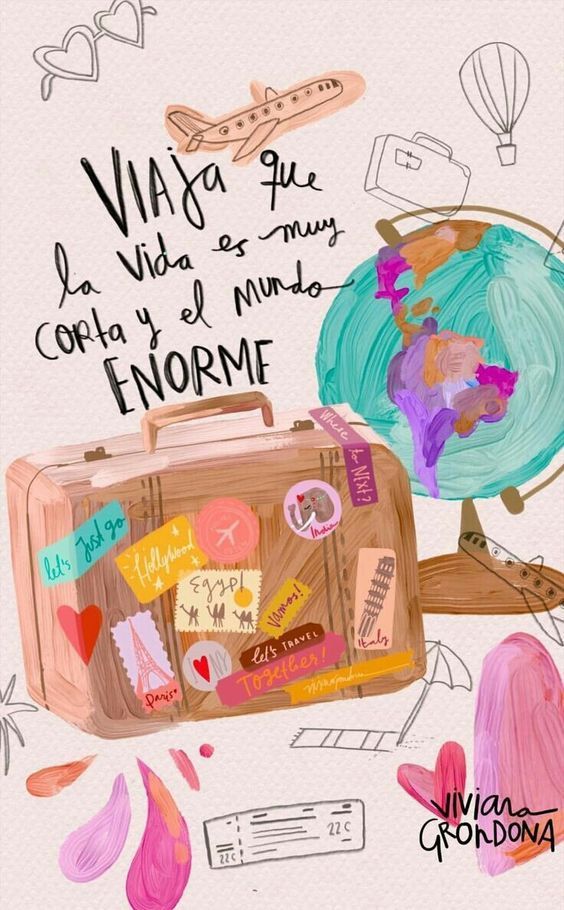 VIAJA que
la vida es muy
corta y el mundo
ENORME
Where to NEXT?
let's Just go
Hollywood
India
EGYPT
Vamos!
Italy
let's TRAVEL
Together!
Paris
22C
22C
viviana
GRONDONA